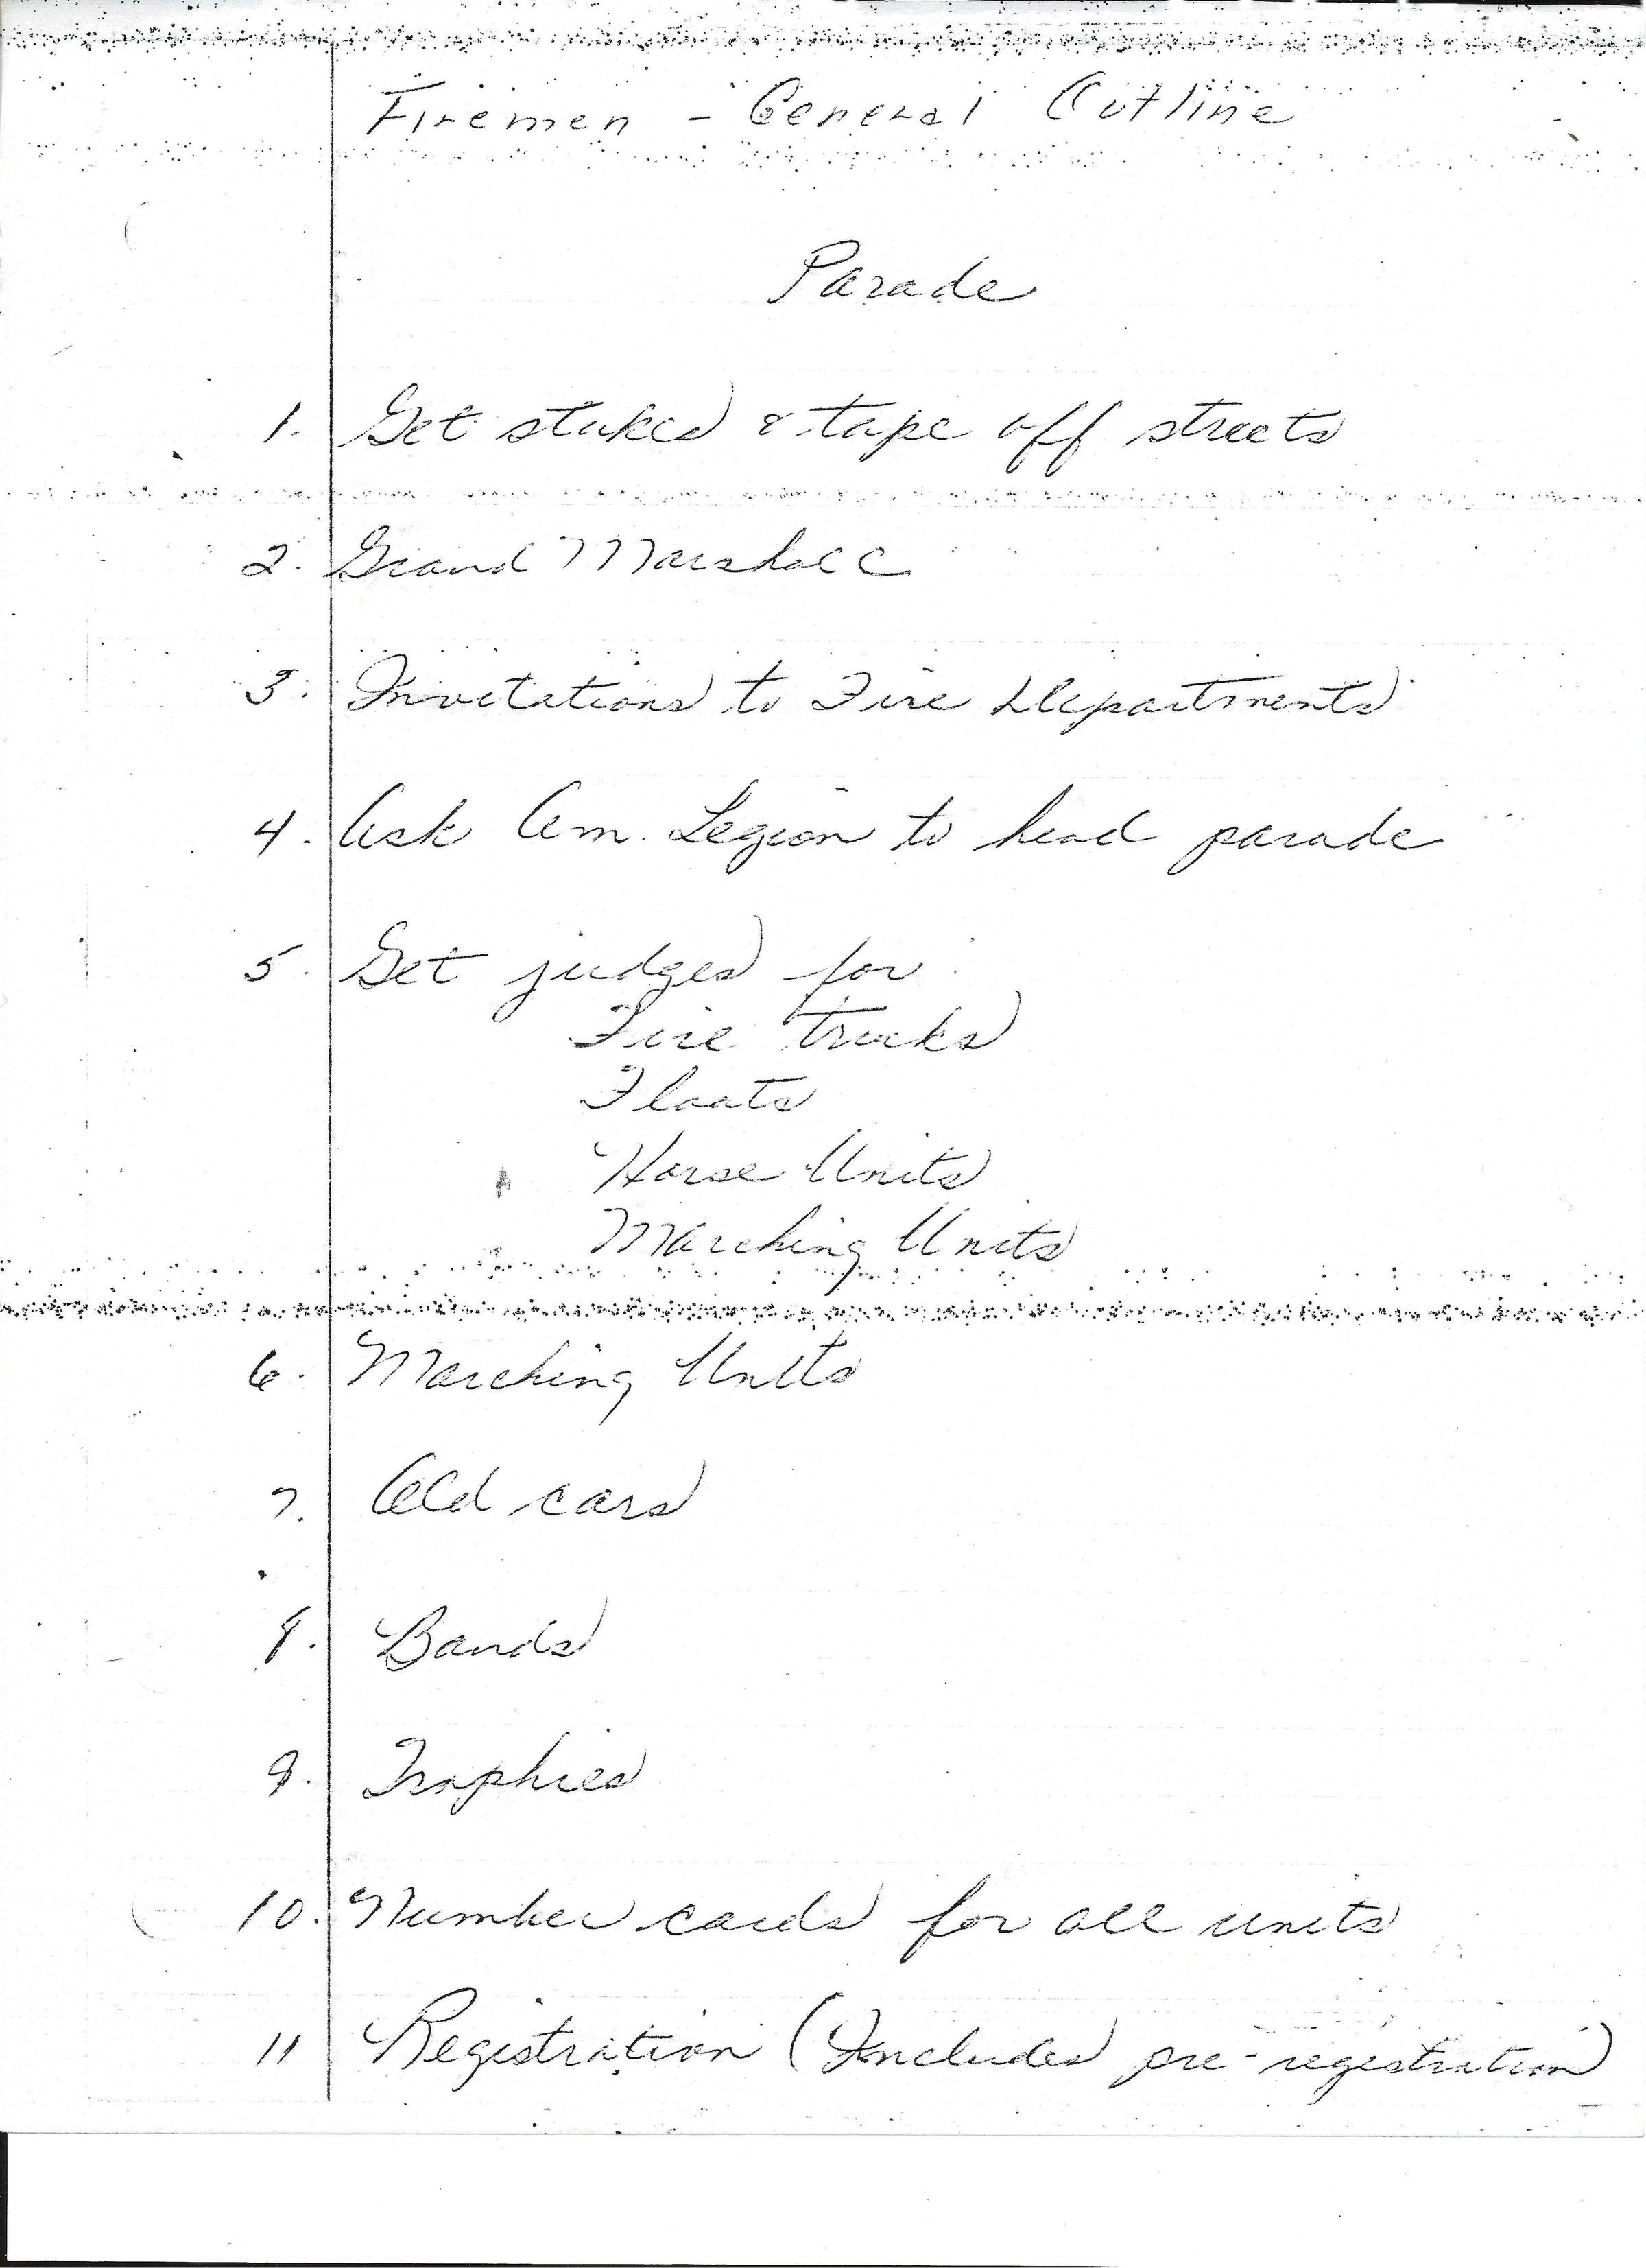 Firemen - General Outline
Parade
1. Get stakes & tape off streets
2. Grand Marshall
3. Invitations to Fire Departments
4. Ask Am. Legion to head parade
5. Get judges for
Fire trucks
Floats
Horse Units
Marching Units
6. Marching Units
7. Old cars
8. Bands
9. Trophies
10. Number cards for all units
11 Registration (Includes pre-registration)